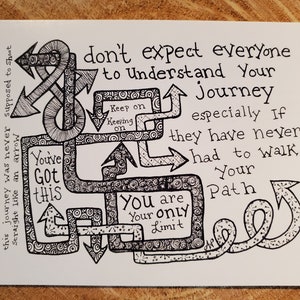 don't expect everyone
to understand your
journey
especially If
they have never
had to walk
your
Path
Keep on
Keeping
on
You've
GOT
this
YOU are
Your ONLY
Limit
this journey was never supposed to shoot
straight like an arrow